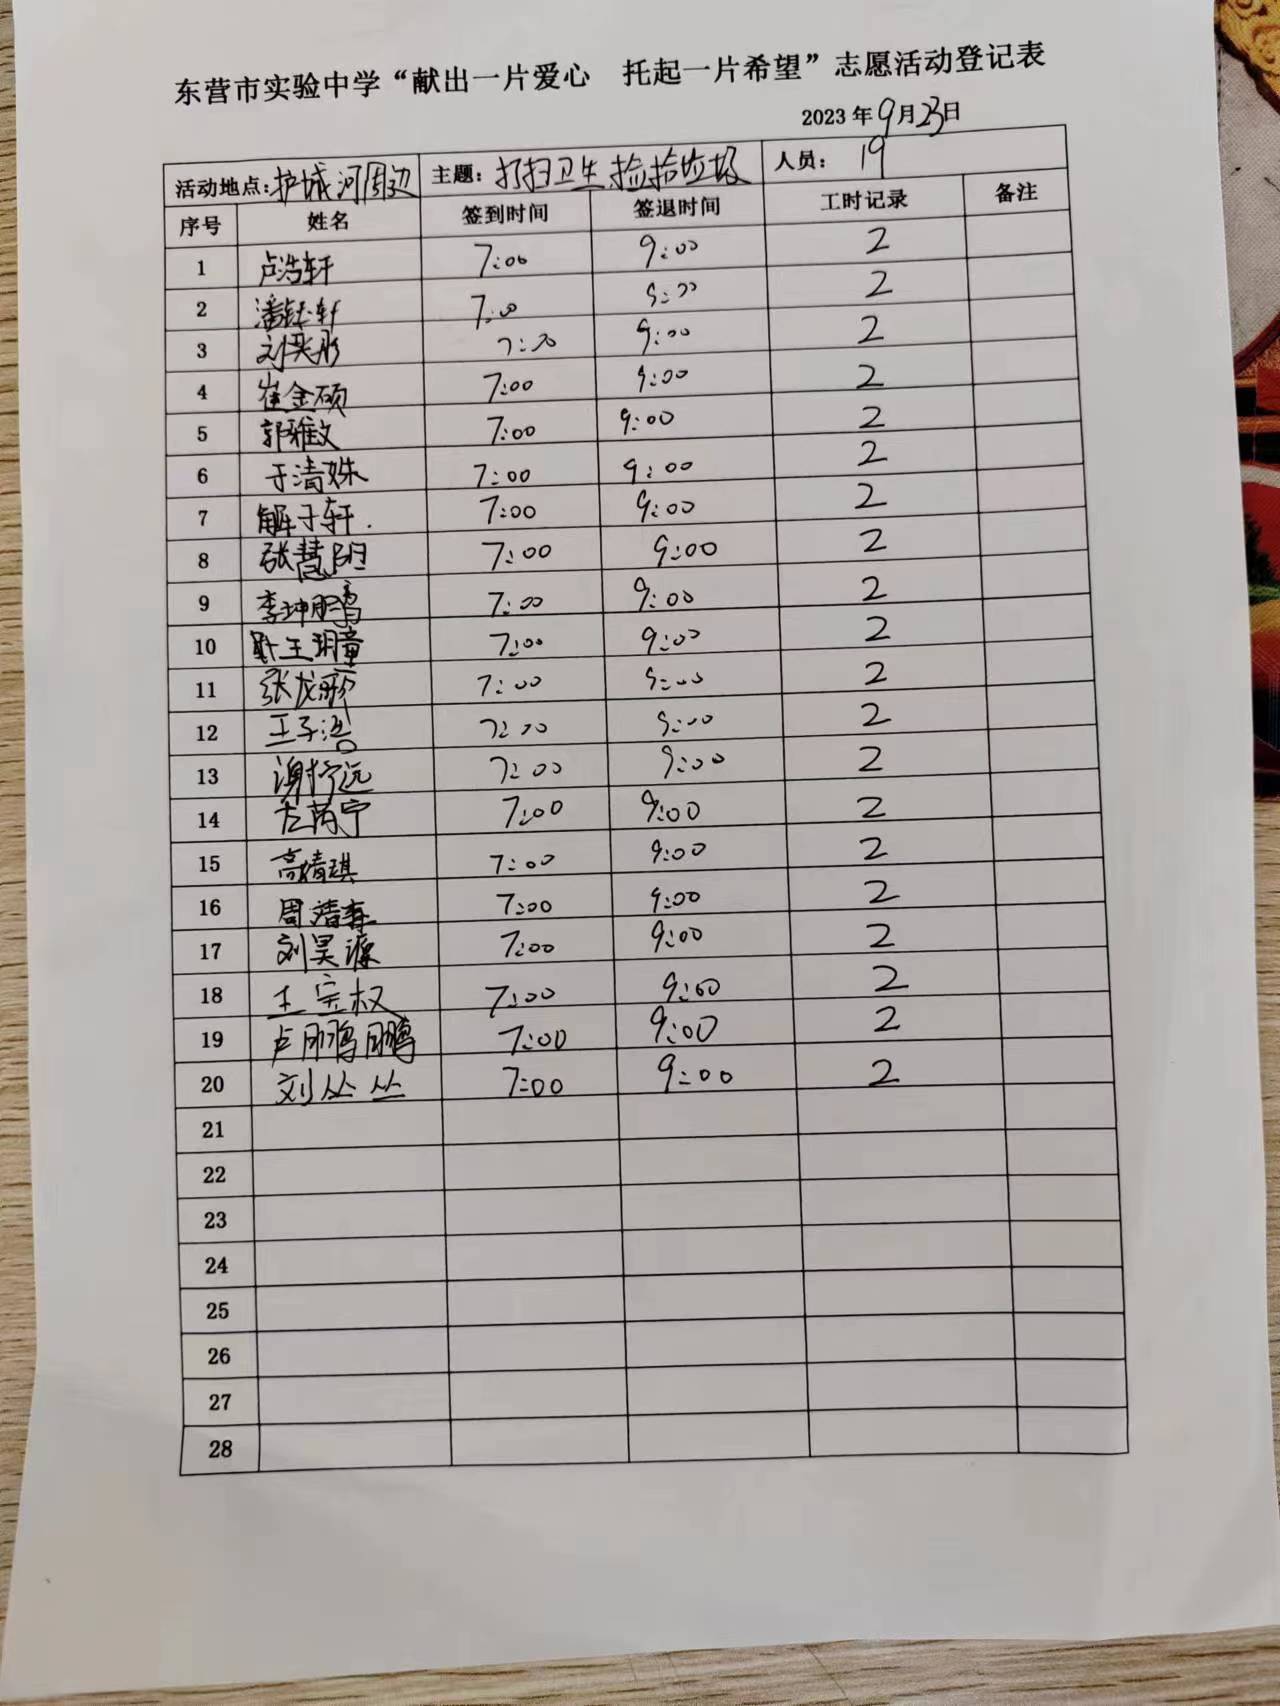 东营市实验中学“献出一片爱心 托起一片希望”志愿活动登记表
2023 年 9 月 23 日
活动地点:护城河周边 主题:打扫卫生捡拾垃圾 人员: 19
序号 姓名 签到时间 签退时间 工时记录 备注
1 卢浩轩 7:00 9:00 2
2 潘钰轩 7:00 9:00 2
3 刘奕彤 7:00 9:00 2
4 崔金硕 7:00 9:00 2
5 郭雅文 7:00 9:00 2
6 于清姝 7:00 9:00 2
7 解子轩 7:00 9:00 2
8 张慧阳 7:00 9:00 2
9 李坤鹏 7:00 9:00 2
10 王玥童 7:00 9:00 2
11 张龙歌 7:00 9:00 2
12 王子浩 7:00 9:00 2
13 谢柠远 7:00 9:00 2
14 左芮宁 7:00 9:00 2
15 高婧琪 7:00 9:00 2
16 周 7:00 9:00 2
17 刘昊源 7:00 9:00 2
18 王宗权 7:00 9:00 2
19 卢鹏鹏 7:00 9:00 2
20 刘丛丛 7:00 9:00 2
21
22
23
24
25
26
27
28